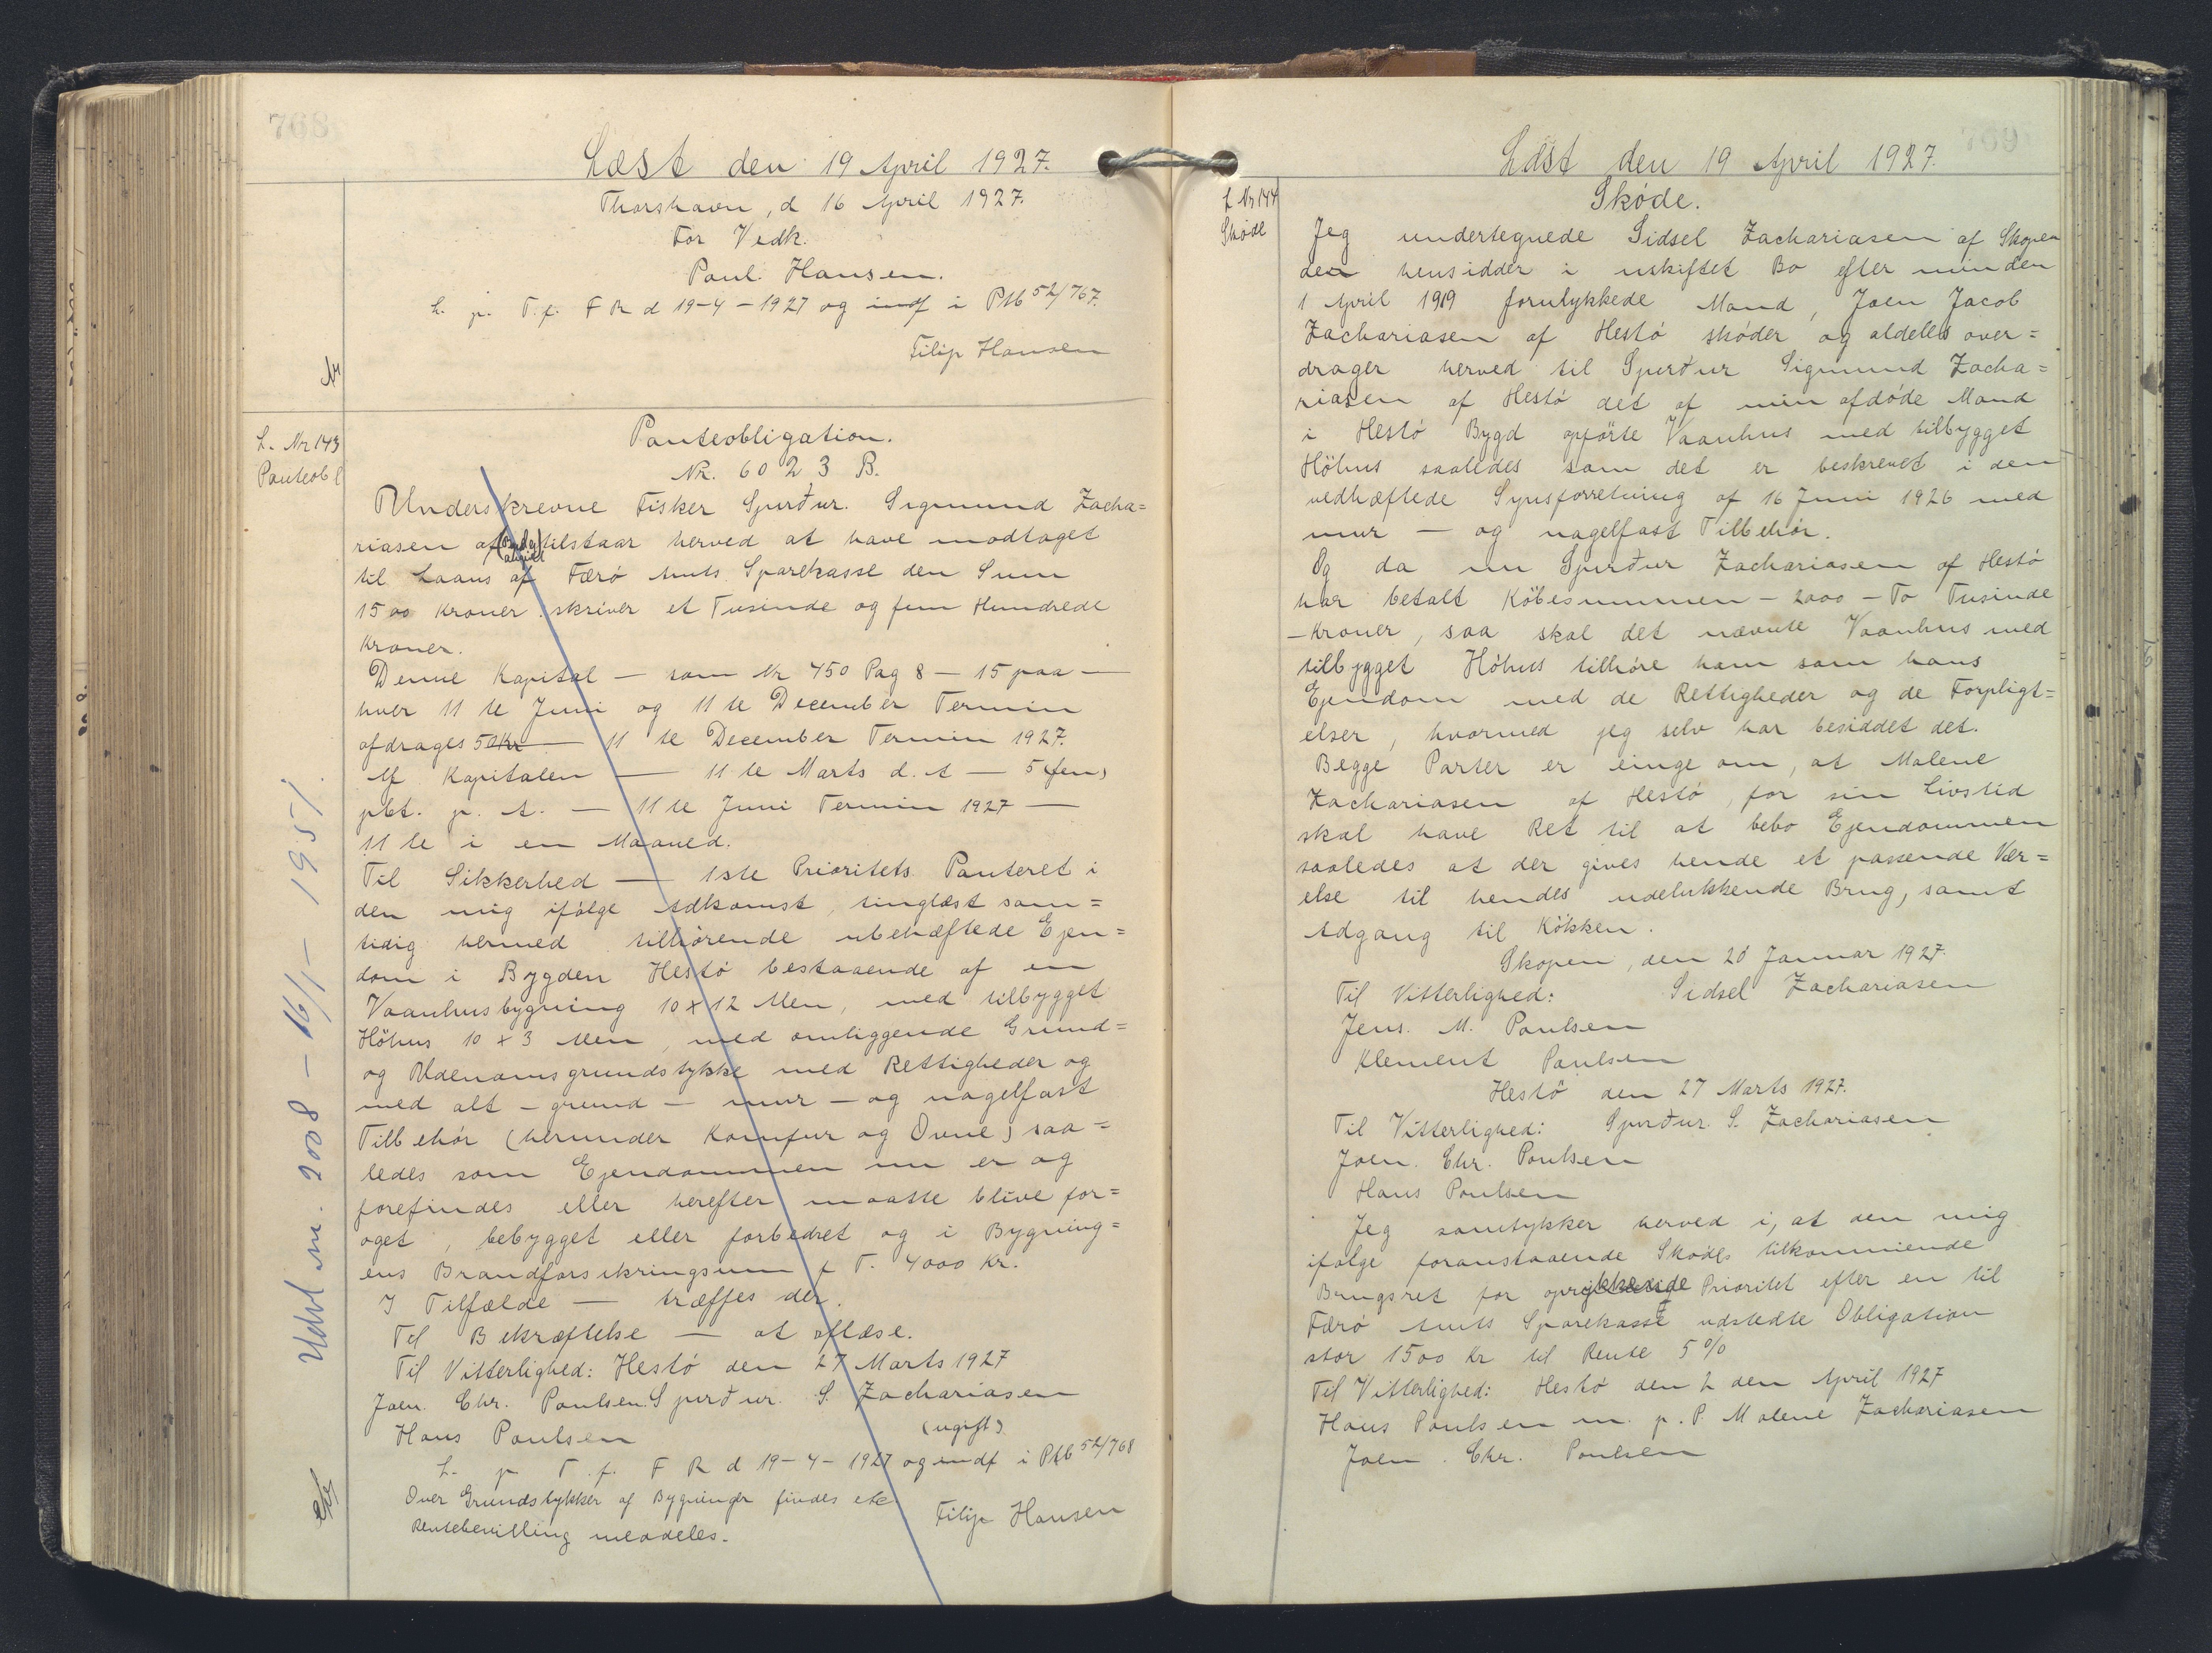 768
Læst den 19 April 1927.
Thorshavn, d 16 April 1927.
For Vedk.
Poul Hansen.
L. p. T. f. F R d 19-4-1927 og indf i Ptb 52/767.
Filip Hansen
L. Nr 143
Panteobl
Panteobligation.
Nr. 6023 B.
Underskrevne Fisker Sjurður. Sigmund Zacha=
riasen af tilstaar herved at have modtaget
til Laans af Færø Amts Sparekasse den Sum
1500 Kroner skriver et Tusinde og fem Hundrede
Kroner.
Denne Kapital — som Nr 450 Pag 8 — 15 paa —
hver 11 te Juni og 11 te December Termin
afdrages 50 Kr — 11 te December Termin 1927.
Af Kapitalen — 11 te Marts d. A — 5 (fem)
pct. p. A. — 11 te Juni Termin 1927 —
11 te i en Maaned.
Til Sikkerhed — 1ste Prioritets Panteret i
den mig ifølge Adkomst, tinglæst sam=
tidig hermed tilhørende ubehæftede Ejen=
dom i Bygden Hestø bestaaende af en
Vaanhusbygning 10 x 12 Alen, med tilbygget
Höhus 10 x 3 Alen, med omliggende Grund=
og Udenomsgrundstykke med Rettigheder og
med alt - grund - mur - og nagelfast
Tilbehör (herunder Komfur og Ovne) saa=
ledes som Ejendommen nu er og
forefindes eller herefter maatte blive for=
øget, bebygget eller forbedret og i Bygning=
ens Brandforsikringsum f T. 4000 Kr.
I Tilfælde — træffes der.
Til Bekræftelse — at aflæse.
Til Vitterlighed: Hestø den 27 Marts 1927
Joen. Chr. Poulsen. Sjurður. S. Zachariasen
Hans Poulsen (ugift)
L. p T. f. F R d 19-4-1927 og indf i Ptb 52/768
Over Grundstykker af Bygninger findes etc
Rentebevilling meddeles.
Filip Hansen
Udsl m. 2008 - 16/1 - 1951.
769
Læst den 19 April 1927.
L Nr 144
Skøde
Skøde.
Jeg undertegnede Sidsel Zachariasen af Skopen
der hensidder i uskiftet Bo efter min den
1 April 1919 forulykkede Mand, Joen Jacob
Zachariasen af Hestø skøder og aldeles over=
drager herved til Sjurður Sigmund Zacha=
riasen af Hestø det af min afdøde Mand
i Hestø Bygd opførte Vaanhus med tilbygget
Höhus saaledes som det er beskrevet i den
vedhæftede Synsforretning af 16 Juni 1926 med
mur — og nagelfast Tilbehör.
Og da nu Sjurður Zachariasen af Hestø
har betalt Købesummen - 2000 - To Tusinde
- Kroner, saa skal det nævnte Vaanhus med
tilbygget Høhus tilhøre ham som hans
Ejendom med de Rettigheder og de Forpligt=
elser, hvormed jeg selv har besiddet det.
Begge Parter er einge om, at Malene
Zachariasen af Hestø, for sin Livstid
skal have Ret til at bebo Ejendommen
saaledes at der gives hende et passende Vær=
else til hendes udelukkende Brug, samt
Adgang til Kökken.
Skopen, den 20 Januar 1927.
Til Vitterlighed: Sidsel Zachariasen
Jens. M. Poulsen
Klement Poulsen
Hestø den 27 Marts 1927.
Til Vitterlighed: Sjurður. S. Zachariasen
Joen. Chr. Poulsen
Hans Poulsen
Jeg samtykker herved i, at den mig
ifølge foranstaaende Skøde tilkommende
Brugsret for oprykkende Prioritet efter en til
Færø Amts Sparekasse udstedte Obligation
stor 1500 Kr til Rente 5 %
Til Vitterlighed: Hestø den 2 den April 1927
Hans Poulsen m. p. P. Malene Zachariasen
Joen. Chr. Poulsen